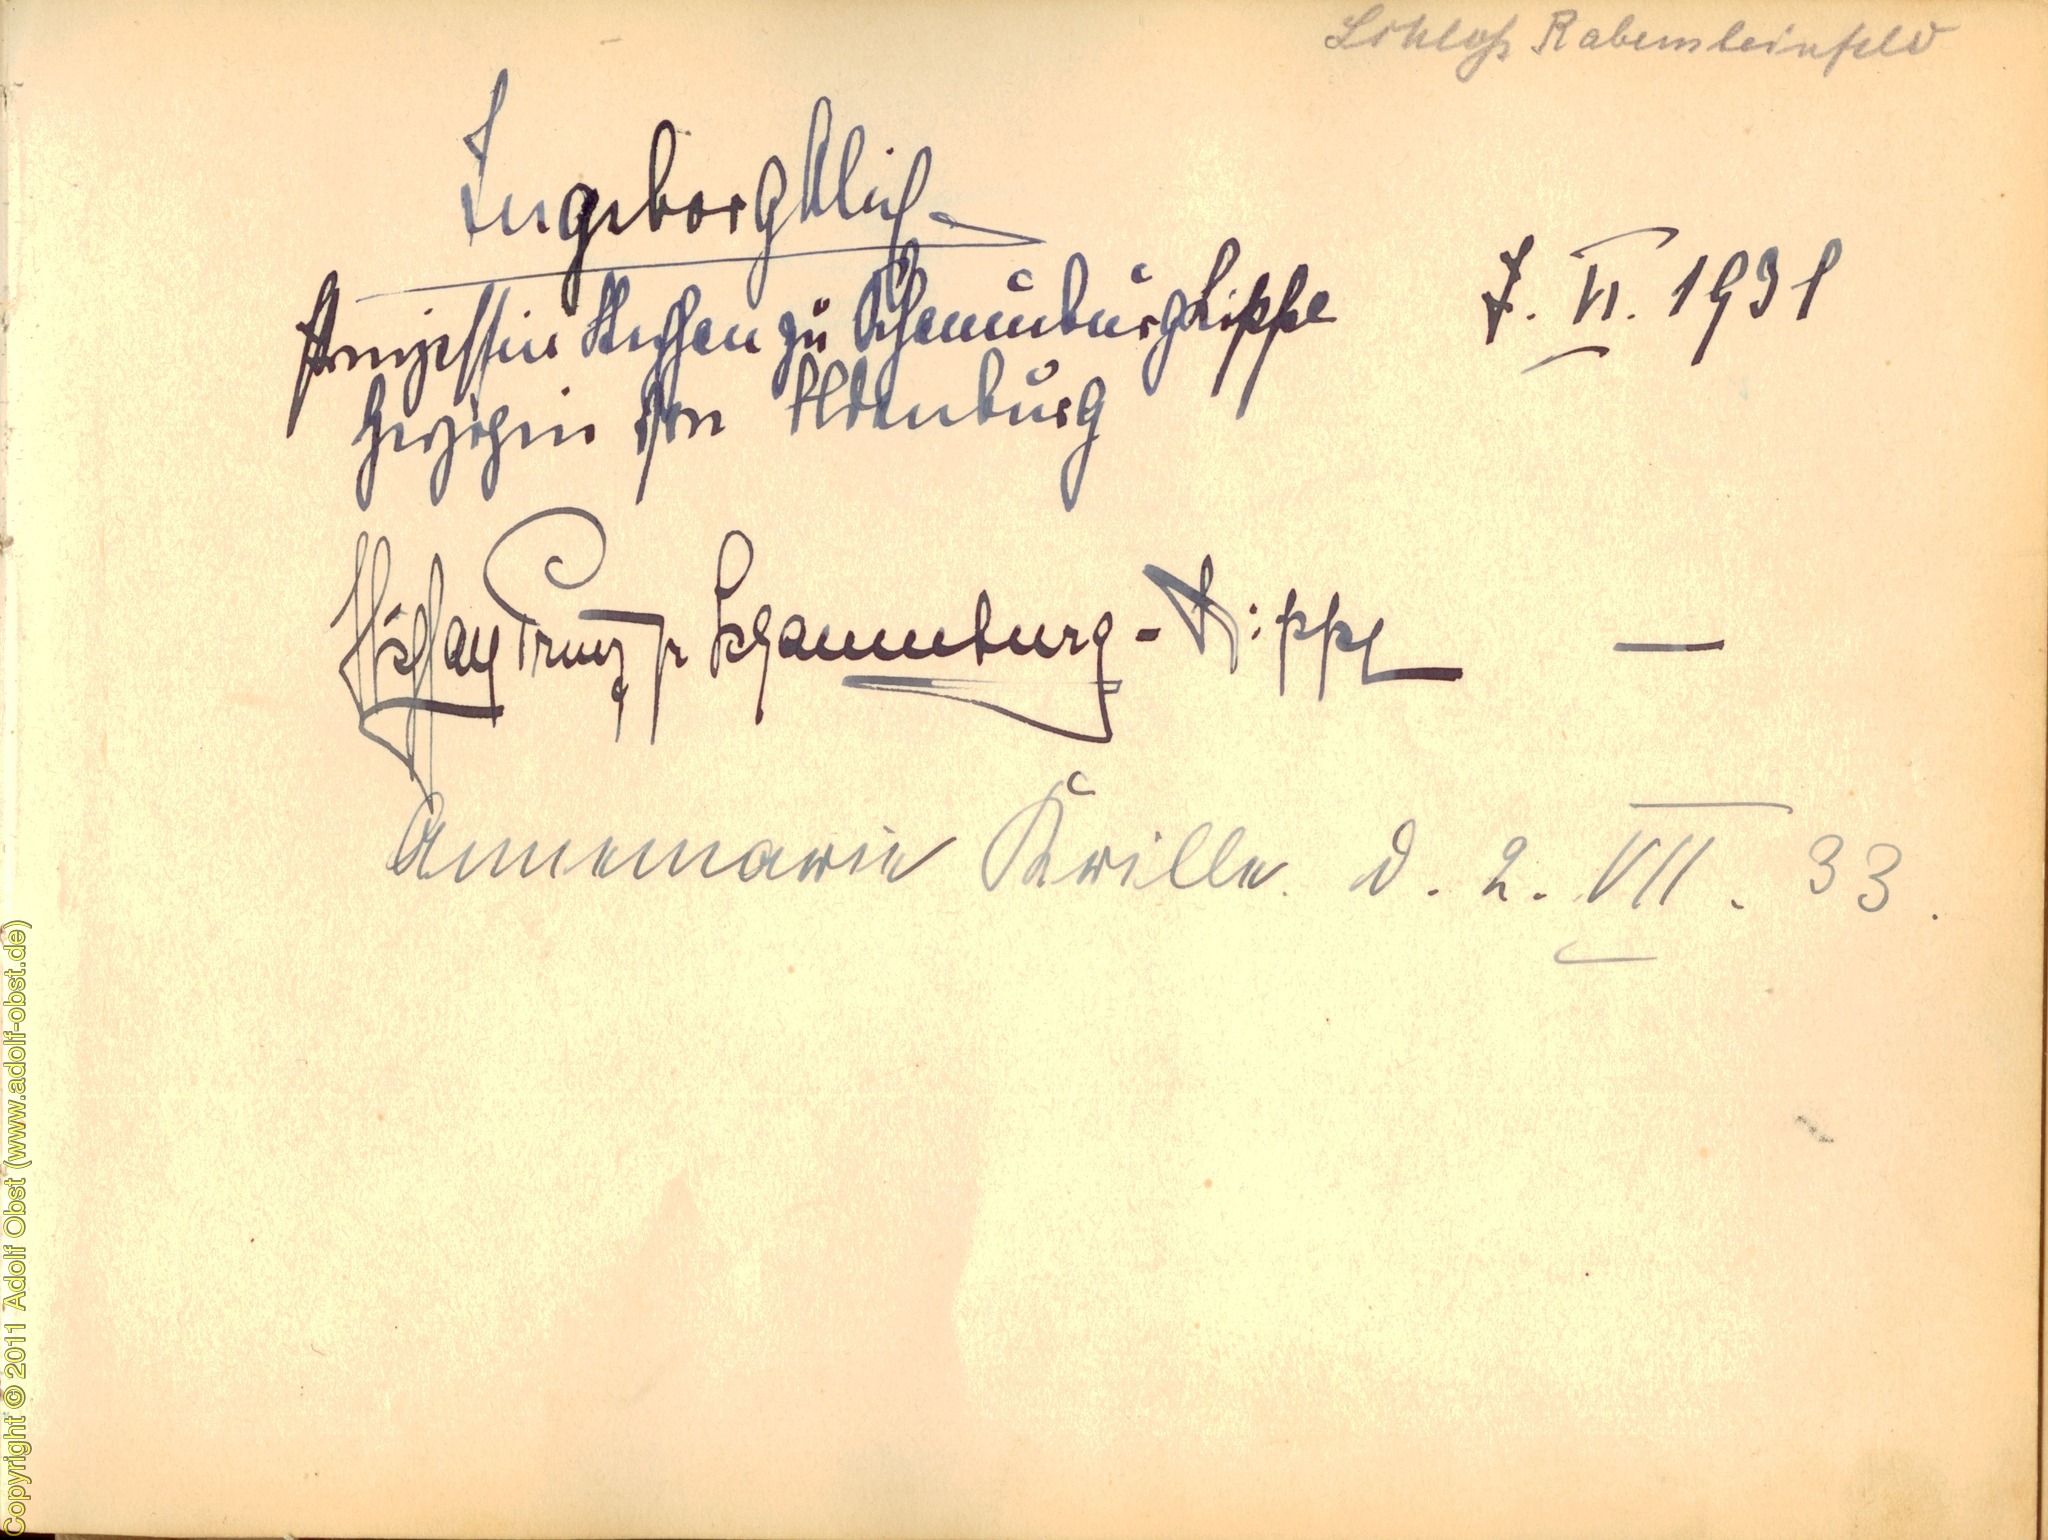 Schloß Rabensteinfeld
Ingeborg Alix
Prinzessin Stephan zu Schaumburg Lippe 7. VI. 1931
Herzogin von Oldenburg
Stephan Prinz zu Schaumburg-Lippe —
Annemarie Krille. d. 2. VII. 33.
Copyright © 2011 Adolf Obst (www.adolf-obst.de)